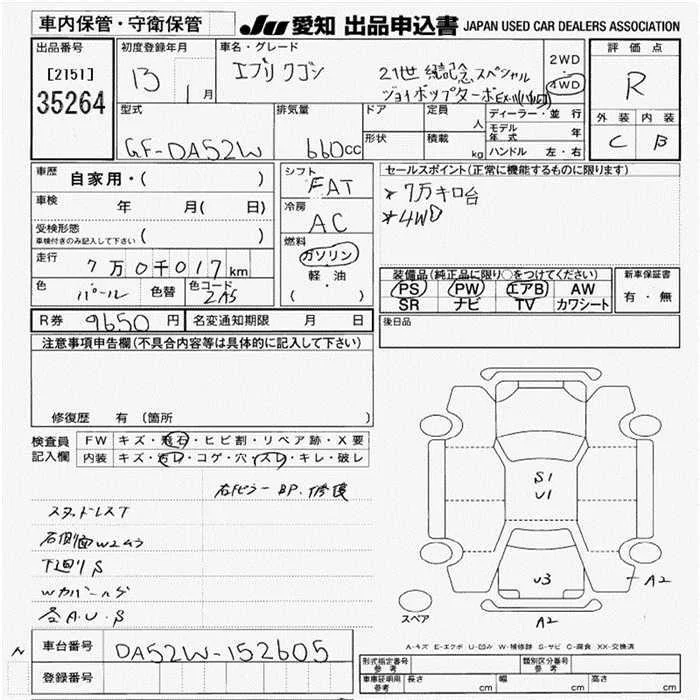 車内保管・守衛保管
JU 愛知 出品申込書 JAPAN USED CAR DEALERS ASSOCIATION
出品番号
[2151]
35264
初度登録年月
13 1月
車名・グレード
エブリ ワゴン
21世紀記念スペシャル
ジョイポップターボ
2WD
4WD
評価点
R
外装 内装
C B
型式
GF-DA52W
排気量
660cc
ドア
形状
定員
人
積載
kg
ディーラー・並行
モデル年式 年
ハンドル 左・右
車歴
自家用・( )
車検
年 月( 日)
受検形態
車検付きのみ記入して下さい ( )
走行
7万0千017km
色
パール
色替
色コード
ZA5
シフト
FAT
冷房
AC
燃料
ガソリン
軽油
( )
セールスポイント(正常に機能するものに限ります)
*7万キロ台
*4WD
装備品(純正品に限り○をつけてください)
PS PW エアB AW
SR ナビ TV カワシート
新車保証書
有・無
R券 9650円
名変通知期限 月 日
後日品
注意事項申告欄(不具合内容等は具体的に記入して下さい)
修復歴 有(箇所 )
検査員
記入欄
FW キズ・飛石・ヒビ割・リペア跡・X要
内装 キズ・汚レ・コゲ・穴・スレ・キレ・破レ
右Bピラー BP.修復
スタッドレスT
右側面W2ムラ
下廻りS
Wカバー
各A.U.S
S1
U1
U3
A2
A2
スペア
A-キズ E-エクボ U-凹み W-補修跡 S-サビ C-腐食 XX-交換済
N
車台番号
DA52W-152605
登録番号
形式指定番号
参考
類別区分番号
参考
車庫証明用
参考
長さ cm
幅 cm
高さ cm